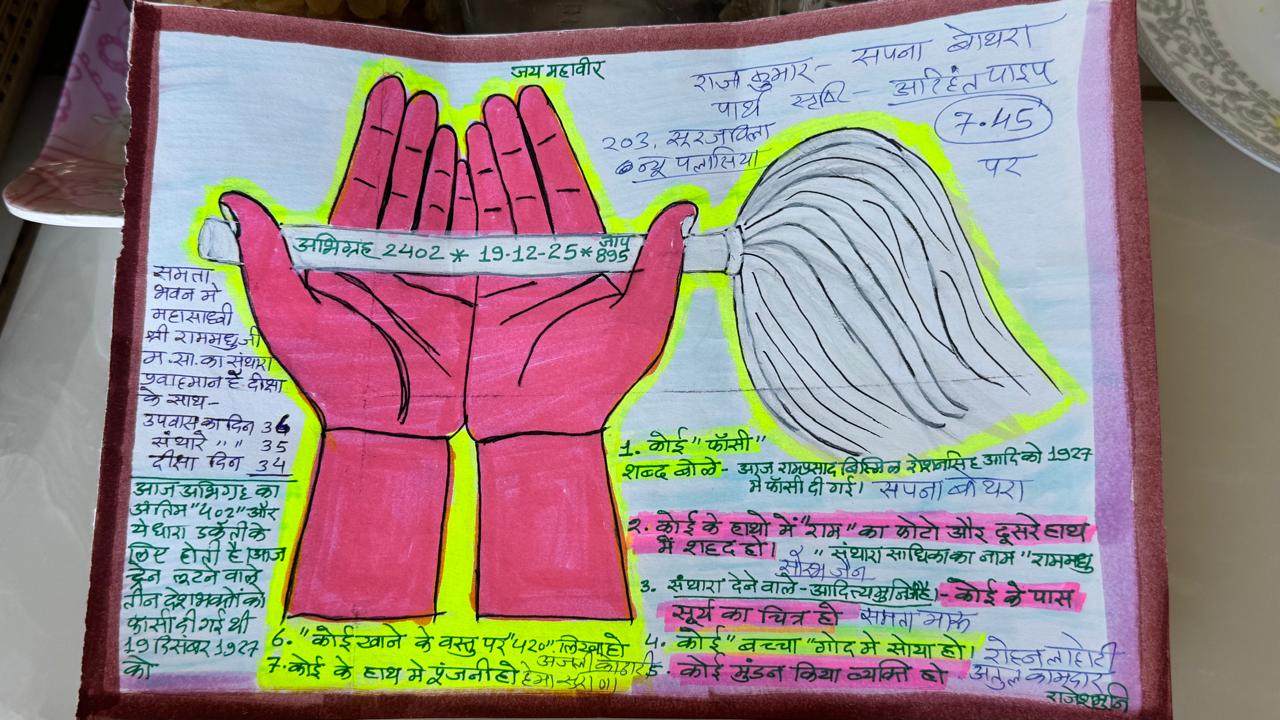 जय महावीर
राजकुमार - सपना बोथरा
पार्थ सृष्टि - अरिहंत पाइप
203, सूरजविला
न्यू पलासिया
7.45
पर
अभिग्रह 2402 * 19-12-25 * जाप 895
समता
भवन मे
महासाध्वी
श्री राममधुजी
म.सा. का संथारा
प्रवाहमान है दीक्षा
के साथ-
उपवास का दिन 36
संथारे " " 35
दीक्षा दिन 34
आज अभिग्रह का
अंतिम "402" और
ये धारा डकैती के
लिए होती है। आज
ट्रेन लूटने वाले
तीन देशभक्तों को
फांसी दी गई थी
19 डिसंबर 1927
को
1. कोई "फॉसी"
शब्द बोले- आज रामप्रसाद बिस्मिल रोशनसिंह आदि को 1927
मे फॉसी दी गई। सपना बोथरा
2. कोई के हाथो में "राम" का फोटो और दूसरे हाथ
में शहद हो। "संथारा साधिका का नाम "राममधु
सौरभ जैन
3. संथारा देने वाले - आदित्य मुनि है।- कोई के पास
सूर्य का चित्र हो समता
4. कोई "बच्चा" गोद मे सोया हो। रोहन लाहोटी
5. कोई मुंडन किया व्यक्ति हो अतुल कामदार
6. "कोई खाने के वस्तु पर "420" लिखा हो
7. कोई के हाथ मे पूंजनी हो हेमा
राजेशमुनि